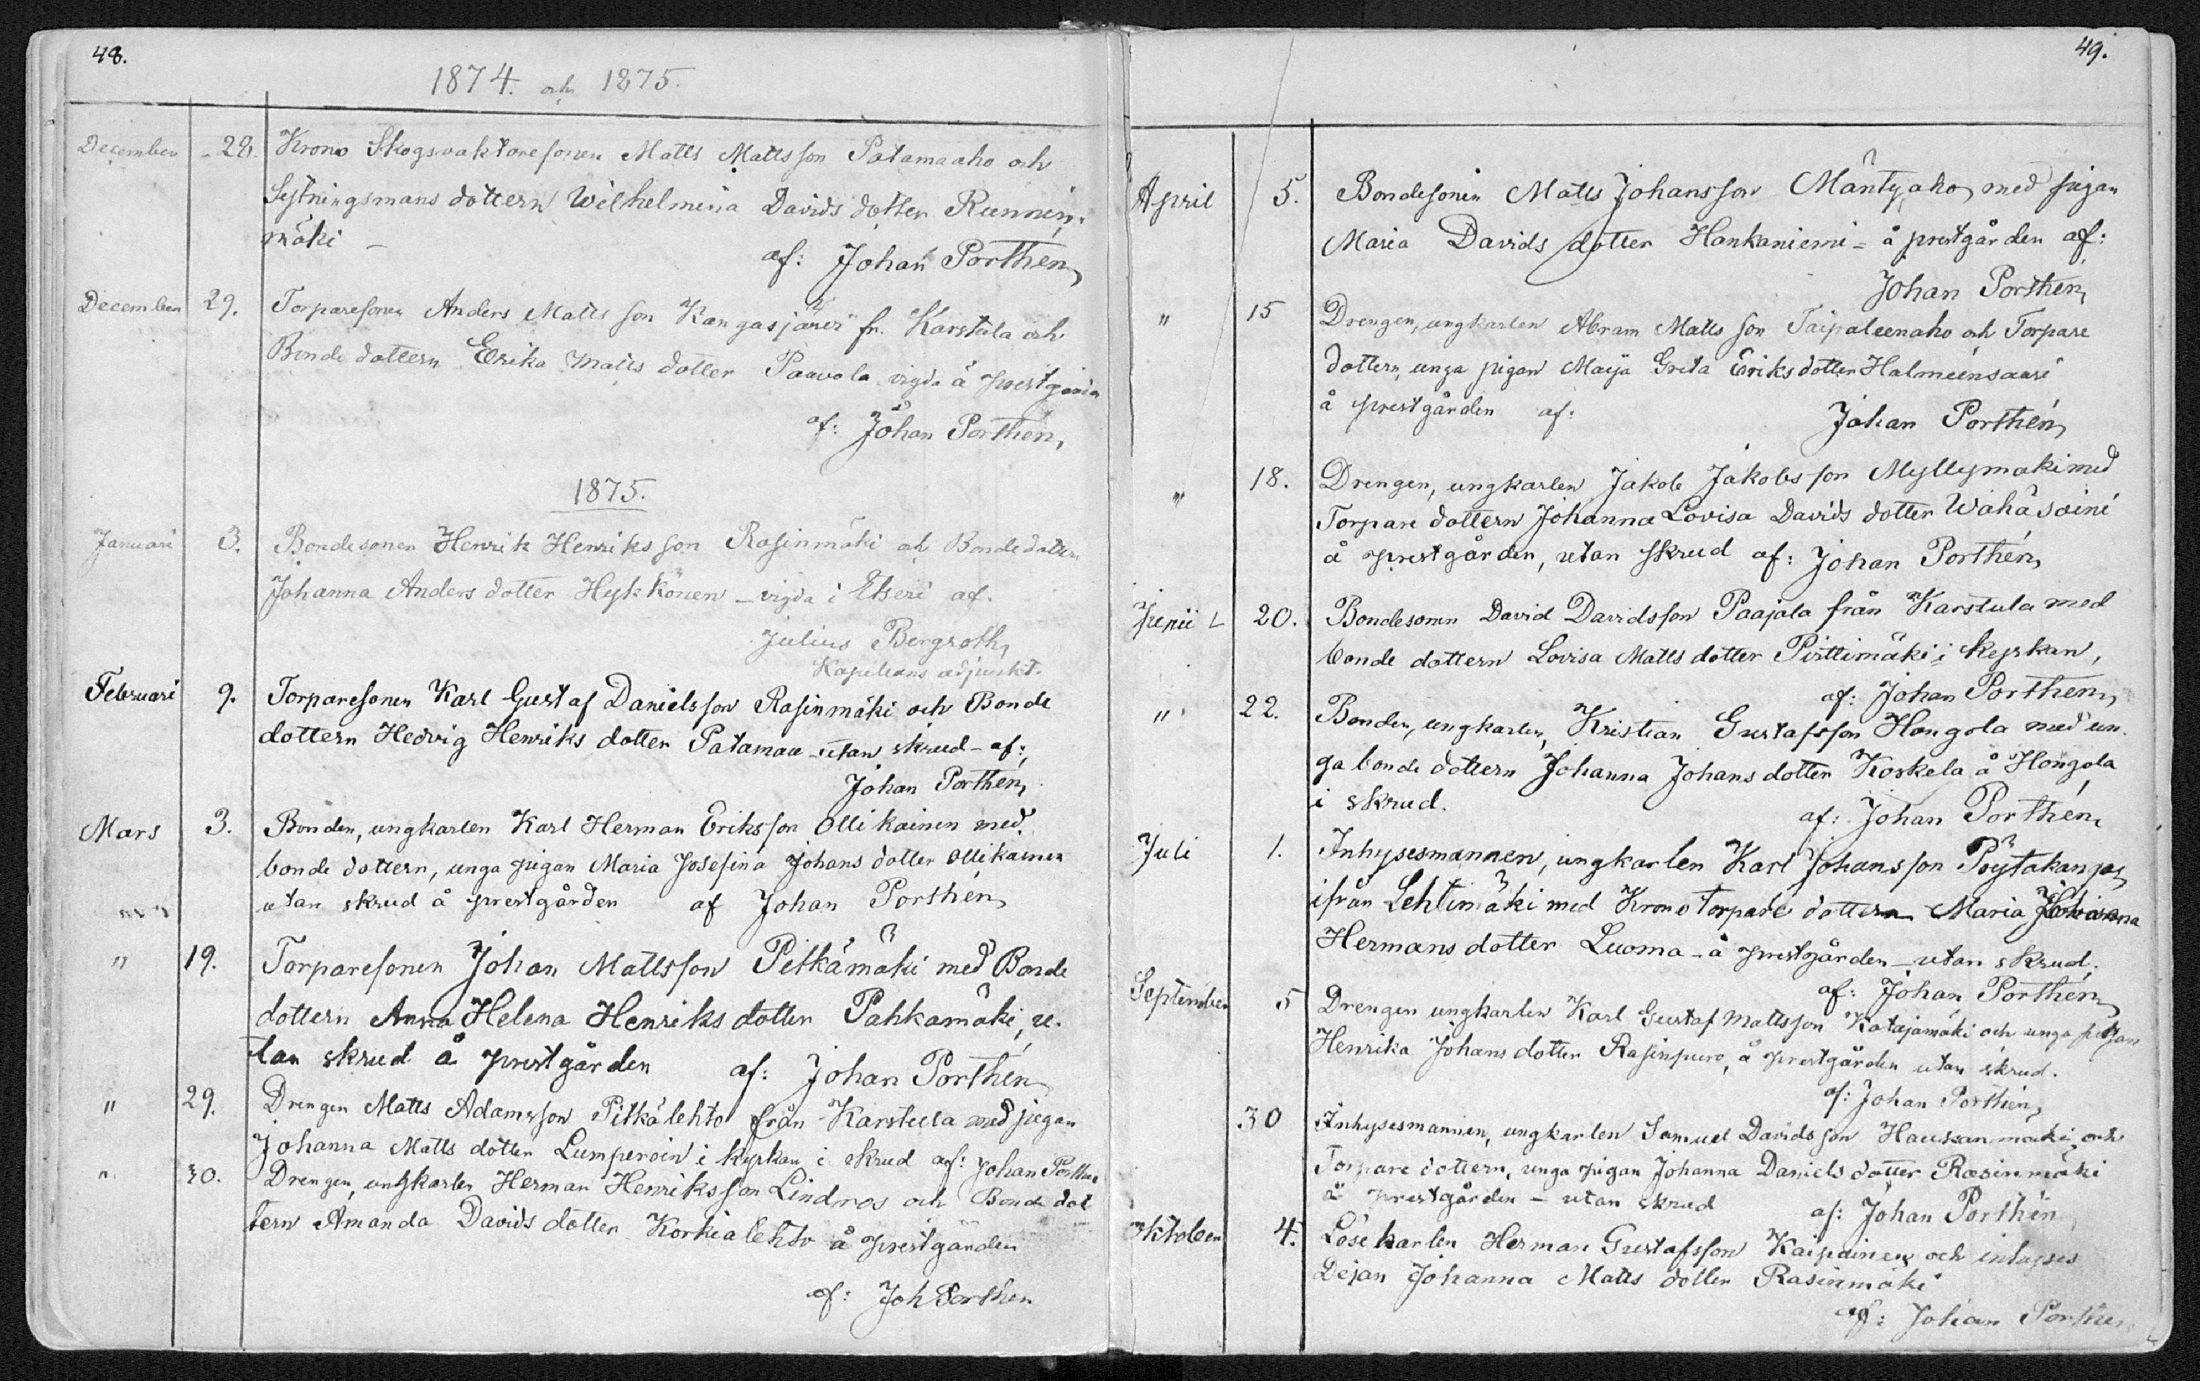 48.
1874. och 1875.
December 28. Krono Skogsvaktaresonen Matts Mattsson Patamaaho och
dottern Wilhelmina Davids dotter Runnin,
mäki –
af: Johan Porthén,
December 29. Torparesonen Anders Matts son Kangasjärvi fr. Karstula och
Bonde dottern Erika Matts dotter Paavola vigda å prestgården
af: Johan Porthén,
1875.
Januari 3. Bondesonen Henrik Henriksson Rasinmäki och Bondedottern
Johanna Anders dotter Hykkönen – vigda i Etseri af.
Julius Bergroth,
Kapellans adjunkt.
Februari 9. Torparesonen Karl Gustaf Danielsson Rasinmäki och Bonde
dottern Hedvig Henriks dotter Patamaa – utan skrud – af:,
Johan Porthén,
Mars 3. Bonden, ungkarlen Karl Herman Eriksson Ollikainen med
bonde dottern, unga pigan Maria Josefina Johans dotter Ollikainen
utan skrud å prestgården af Johan Porthén,
" 19. Torparesonen Johan Mattsson Pitkämäki med Bonde
dottern Anna Helena Henriks dotter Pahkamäki, u-
tan skrud å prestgården af: Johan Porthén,
" 29. Drengen Matts Adamsson Pitkälehto från Karstula med pigan
Johanna Matts dotter Lumperoin i kyrkan i skrud af: Johan Porthén
". 30. Drengen, ungkarlen Herman Henriksson Lindros och Bonde dot
tern Amanda Davids dotter Korkialehto å prestgården
af: Joh Porthen
49.
April 5. Bondesonen Matts Johansson Mäntyaho, med pigan
Maria Davids dotter Hankaniemi – å prestgården af:
Johan Porthén,
" 15 Drengen, ungkarlen Abram Matts son Taipaleenaho och Torpare
dottern, unga pigan Maija Greta Eriks dotter Halmeensaari
å prestgården af: Johan Porthén,
" 18. Drengen, ungkarlen Jakob Jakobsson Myllymäki med
Torpare dottern Johanna Lovisa Davids dotter Wähäsoini
å prestgården, utan skrud af: Johan Porthén,
Junii 20. Bondesonen David Davidsson Paajala från Karstula med
bonde dottern Lovisa Matts dotter Pirttimäki i kyrkan,
af: Johan Porthen,
" 22. Bonden, ungkarlen, Kristian Gustafsson Hongola med un
ga bonde dottern Johanna Johans dotter Koskela å Hongola
i skrud.
af: Johan Porthén,
Juli 1. Inhysesmannen, ungkarlen Karl Johansson Pöytäkangas,
ifrån Lehtimäki med Kronotorpare dottern Maria Johanna
Hermans dotter Luoma – å prestgården – utan skrud.
af: Johan Porthén,
September 5 Drengen ungkarlen Karl Gustaf Mattsson Katajamäki och unga pigan
Henrika Johans dotter Rasinpuro, å prestgården utan skrud.
af: Johan Porthén,
30 Inhysesmannen, ungkarlen Samuel Davidsson Hauskanmäki, och
Torpare dottern, unga pigan Johanna Daniels dotter Rasinmäki
å prestgården – utan skrud af: Johan Porthén
Oktober 4. Lösekarlen Herman Gustafsson Kaipainen och inhyses
Johanna Matts dotter Rasinmäki
af: Johan Porthen